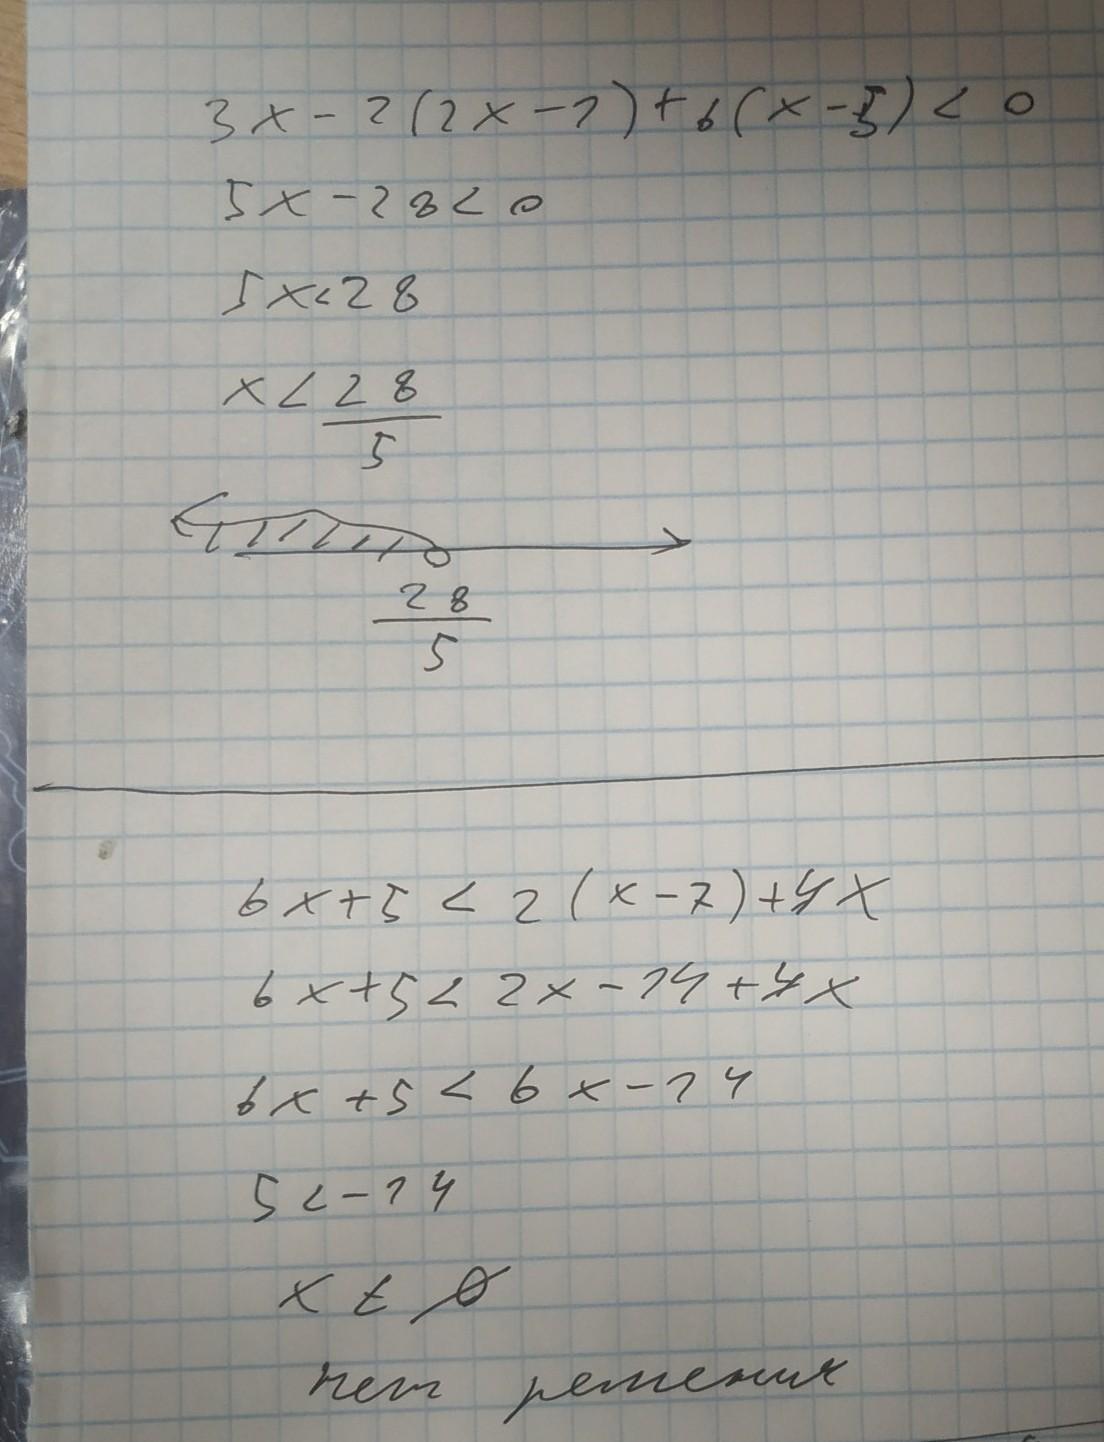 3x-2(2x-1)+6(x-5)<0
5x-28<0
5x<28
x<28/5
28/5
6x+5<2(x-7)+4x
6x+5<2x-14+4x
6x+5<6x-14
5<-14
x∈∅
нет решения